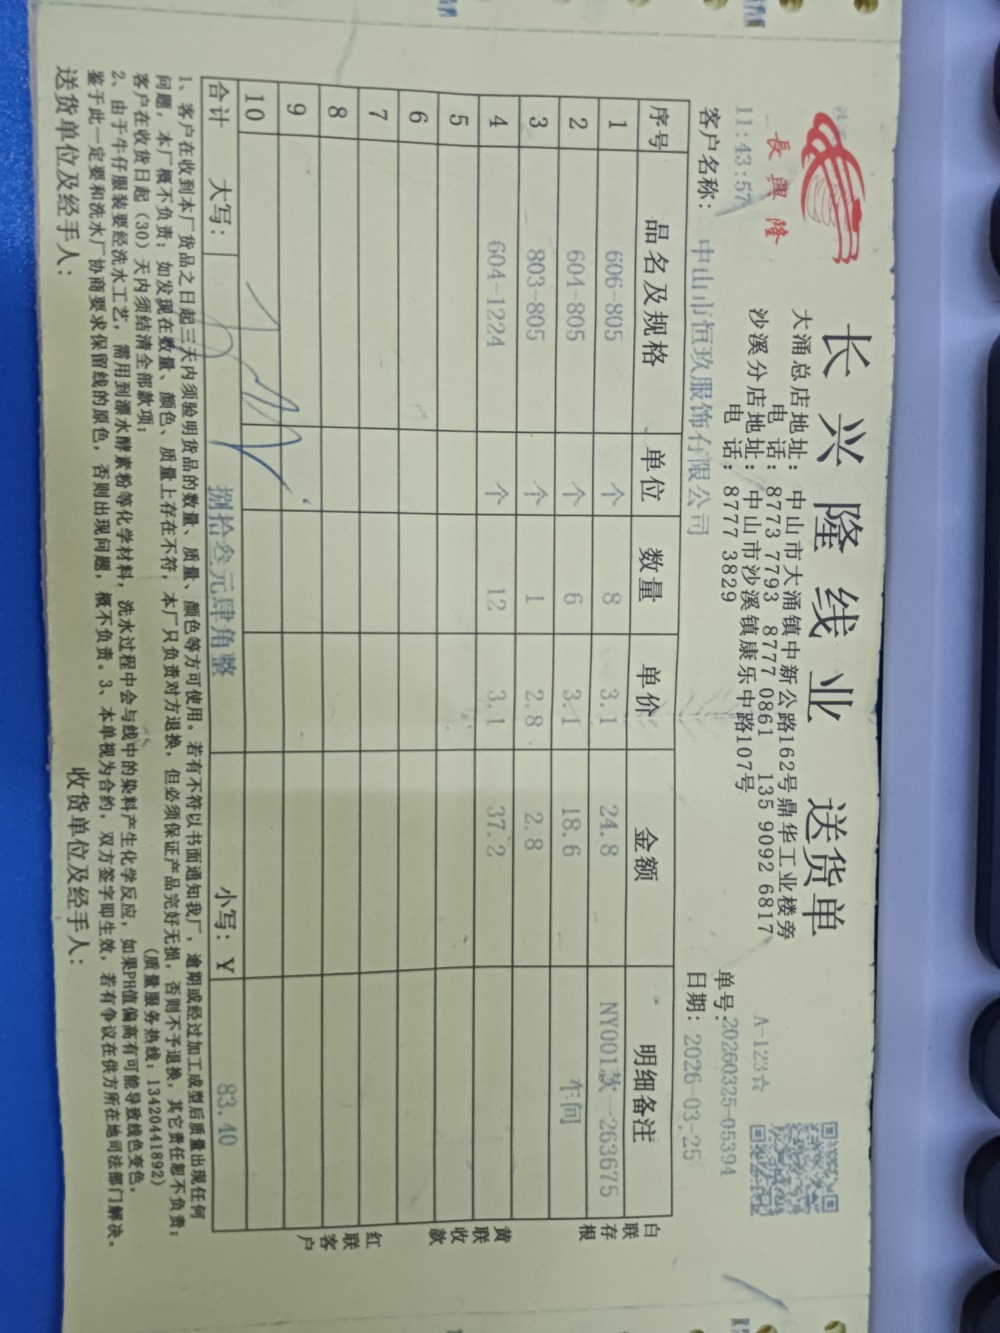 長興隆
长兴隆线业 送货单
大涌总店地址：中山市大涌镇中新公路162号鼎华工业楼旁
电 话：8773 7793 8777 0861 135 9092 6817
沙溪分店地址：中山市沙溪镇康乐中路107号
电 话：8777 3829
11:43:57
单号：20260325-05394
客户名称：中山市恒玖服饰有限公司 日期：2026-03-25
序号 品名及规格 单位 数量 单价 金额 明细备注
1 606-805 个 8 3.1 24.8 NY001款-263675
2 604-805 个 6 3.1 18.6 车间
3 803-805 个 1 2.8 2.8
4 604-1224 个 12 3.1 37.2
5
6
7
8
9
10
合计 大写： 捌拾叁元肆角整 小写：￥ 83.40
白联存根
黄联收款
红联客户
1、客户在收到本厂货品之日起三天内须验明货品的数量、质量、颜色等方可使用。若有不符以书面通知我厂，逾期或经过加工成型后质量出现任何
问题，本厂概不负责；如发现在数量、颜色、质量上存在不符，本厂只负责对方退换，但必须保证产品完好无损，否则不予退换，其它责任恕不负责；
客户在收货日起（30）天内须结清全部款项； （质量服务热线：13420441892）
2、由于牛仔服装要经洗水工艺，需用到漂水酵素粉等化学材料，洗水过程中会与线中的染料产生化学反应，如果PH值偏高有可能导致线色变色，
鉴于此一定要和洗水厂协商要求保留线的原色，否则出现问题，概不负责。3、本单视为合约，双方签字即生效，若有争议在供方所在地司法部门解决。
送货单位及经手人： 收货单位及经手人：